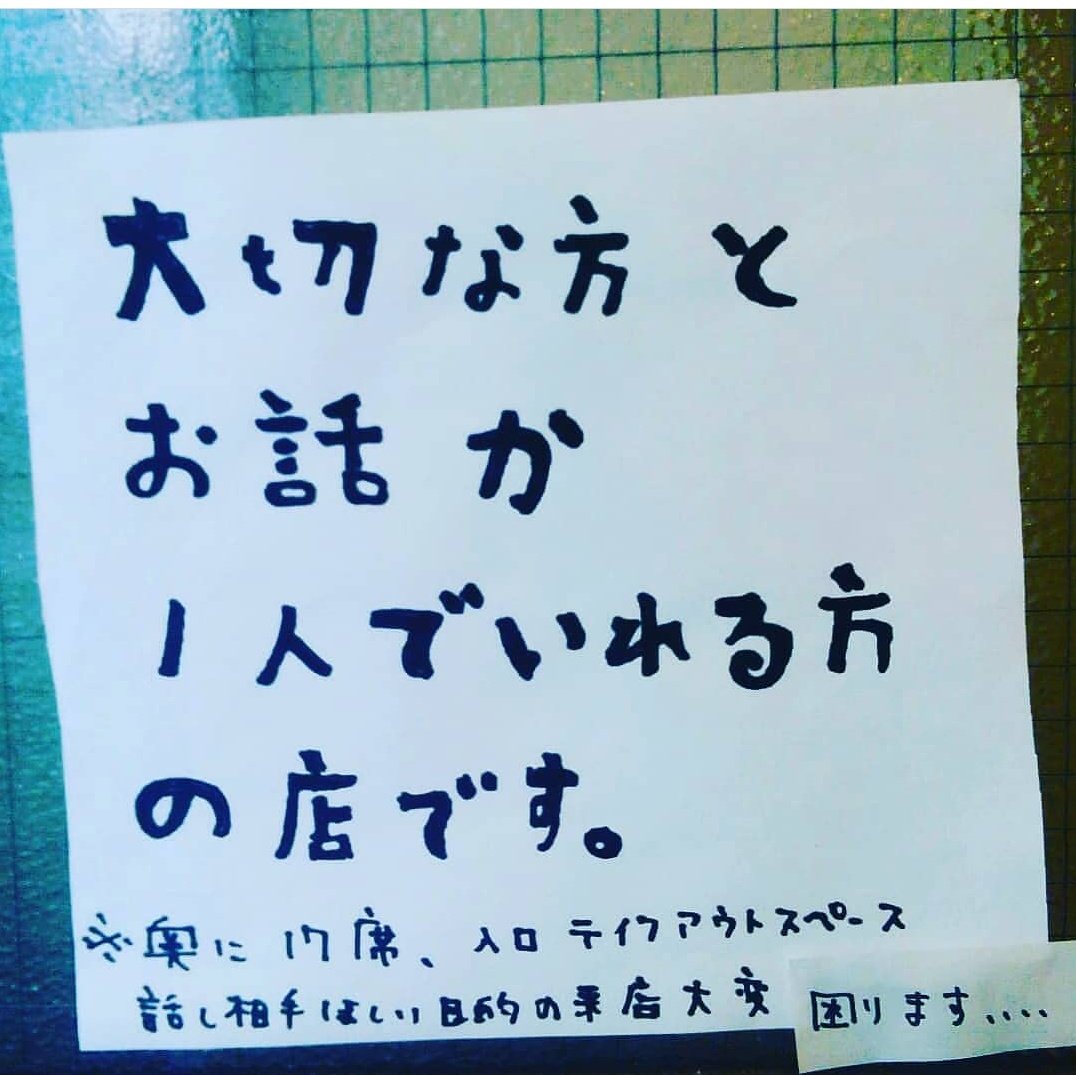 大切な方と
お話か
1人でいれる方
の店です。
※奥に17席、入口テイクアウトスペース
話し相手ほしい目的の来店大変困ります、、、、